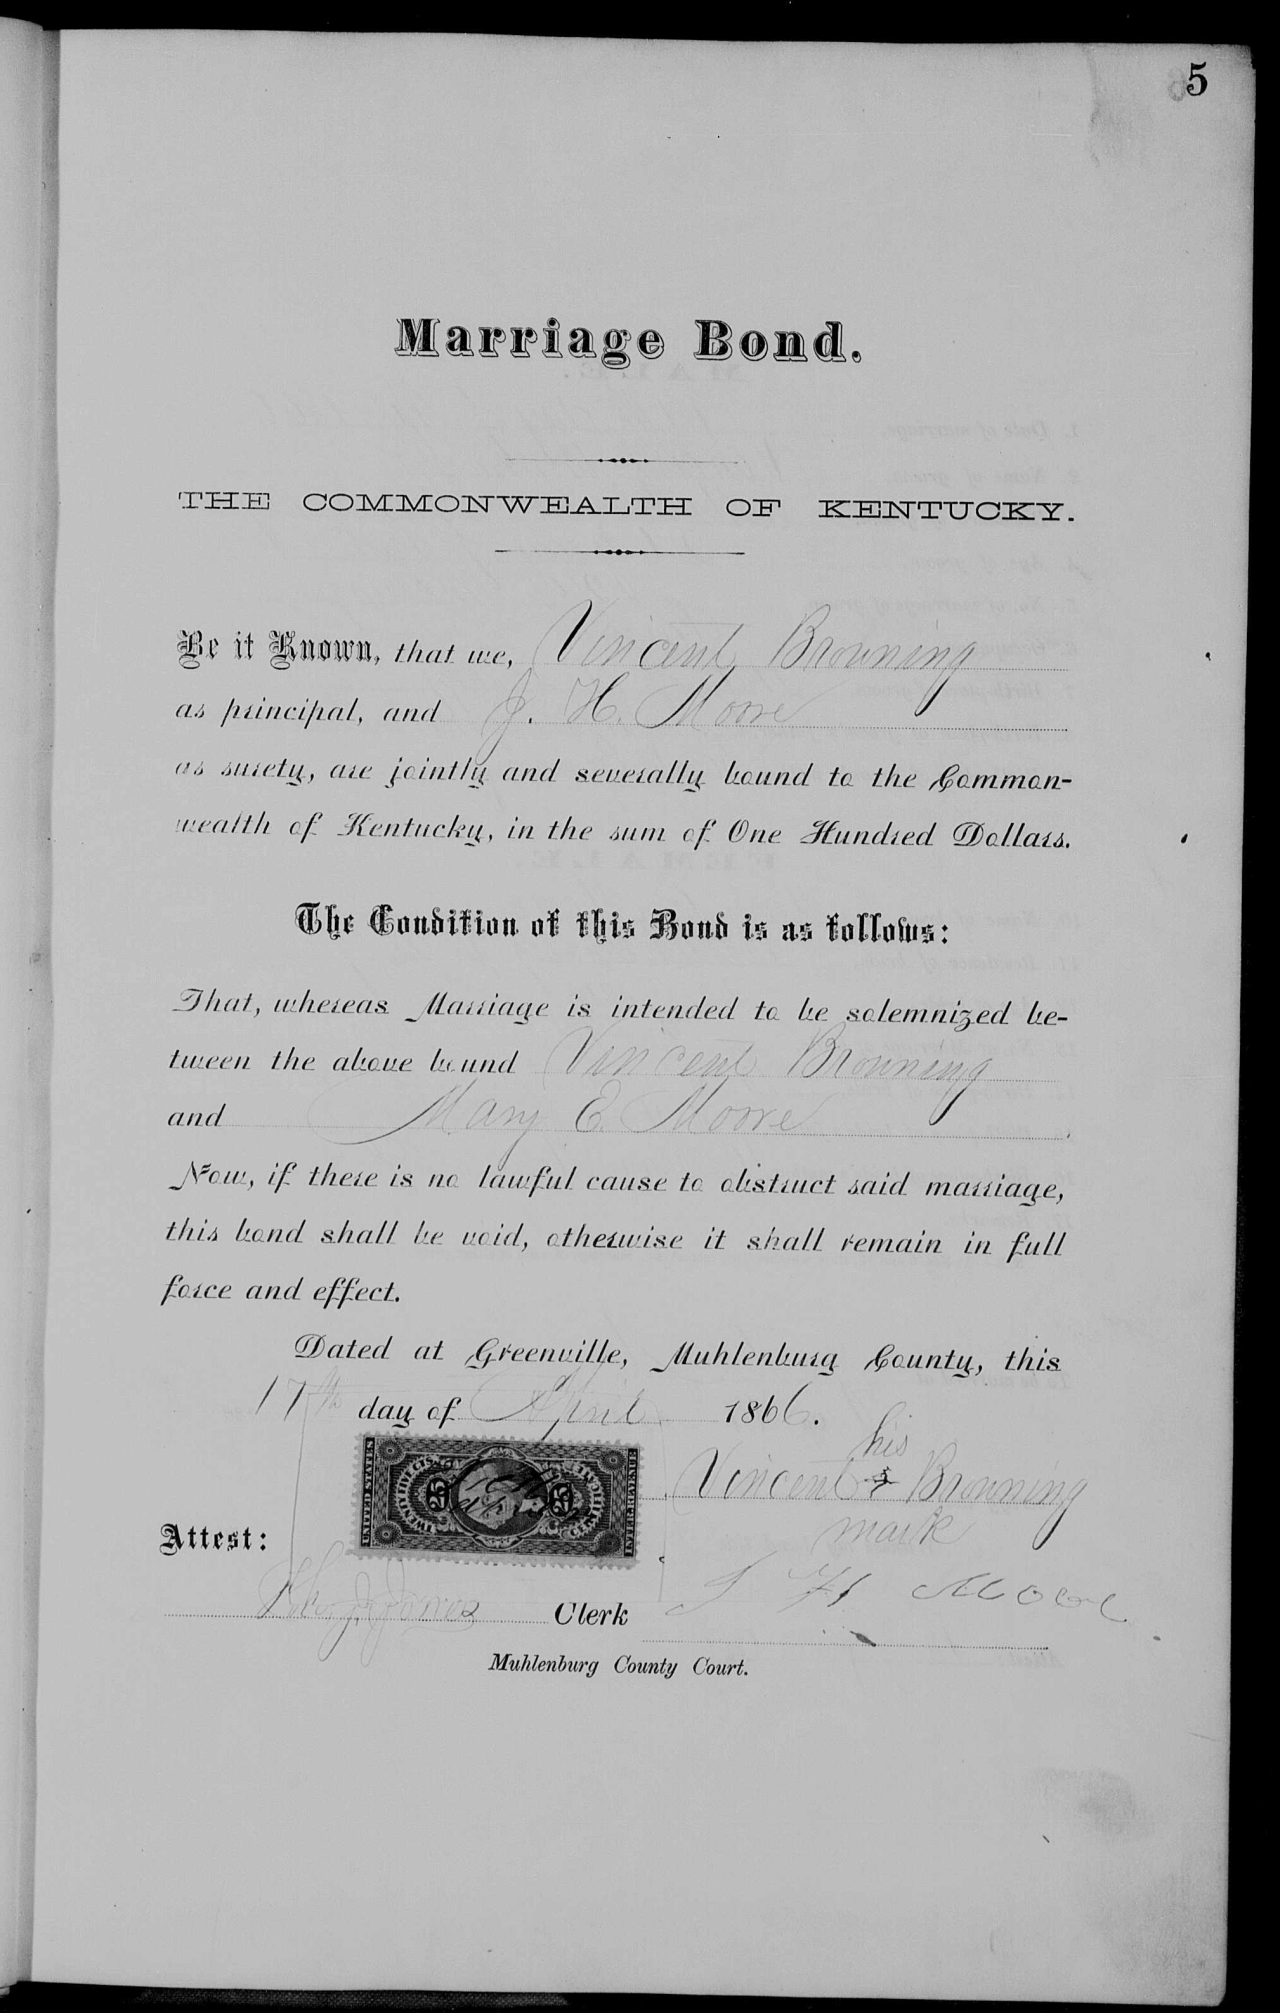 5
Marriage Bond.
THE COMMONWEALTH OF KENTUCKY.
Be it Known, that we, Vincent Browning
as principal, and J. H. Moore
as surety, are jointly and severally bound to the Common-
wealth of Kentucky, in the sum of One Hundred Dollars.
The Condition of this Bond is as follows:
That, whereas Marriage is intended to be solemnized be-
tween the above bound Vincent Browning
and Mary E. Moore.
Now, if there is no lawful cause to obstruct said marriage,
this bond shall be void, otherwise it shall remain in full
force and effect.
Dated at Greenville, Muhlenburg County, this
17th day of April 1866.
his
Vincent Browning
mark
UNITED STATES
TWENTY FIVE CENTS
25 25
INTER. REVENUE
Attest:
J H Moore
Jones Clerk
Muhlenburg County Court.